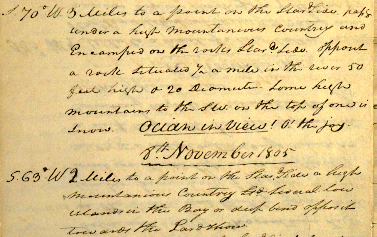 S. 70° W 3 Miles to a point on the Star'd Side, pass'g
under a high Mountaneous Country and
Encamped on the rocks Star'd Side. oppost
a rock Situated ½ a mile in the river 50
feet high & 20 Diameter Some high
mountains to the SW. on the top of one is
Snow. Ocian in View! O! the joy.
8th November 1805
S. 63° W 2 Miles to a point on the Star'd Side a high
Mountanious Country
Islands in the Bay or deep bend opposit
towards the Lard Shore